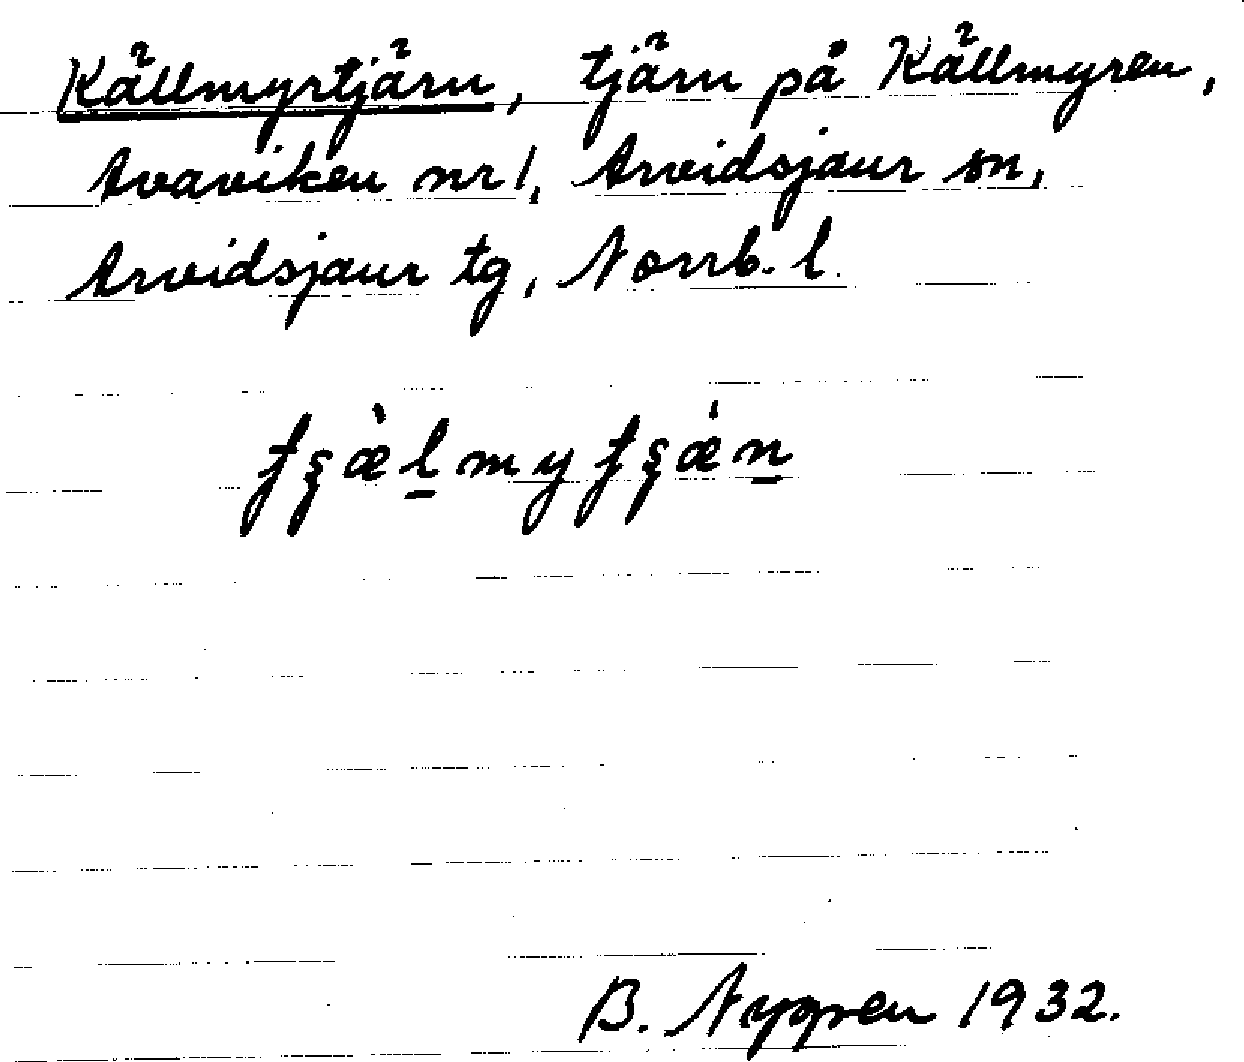 Källmyrtjärn, tjärn på Källmyren,
Avaviken nr 1, Arvidsjaur sn,
Arvidsjaur tg, Norrb. l.
B. Nygren 1932.